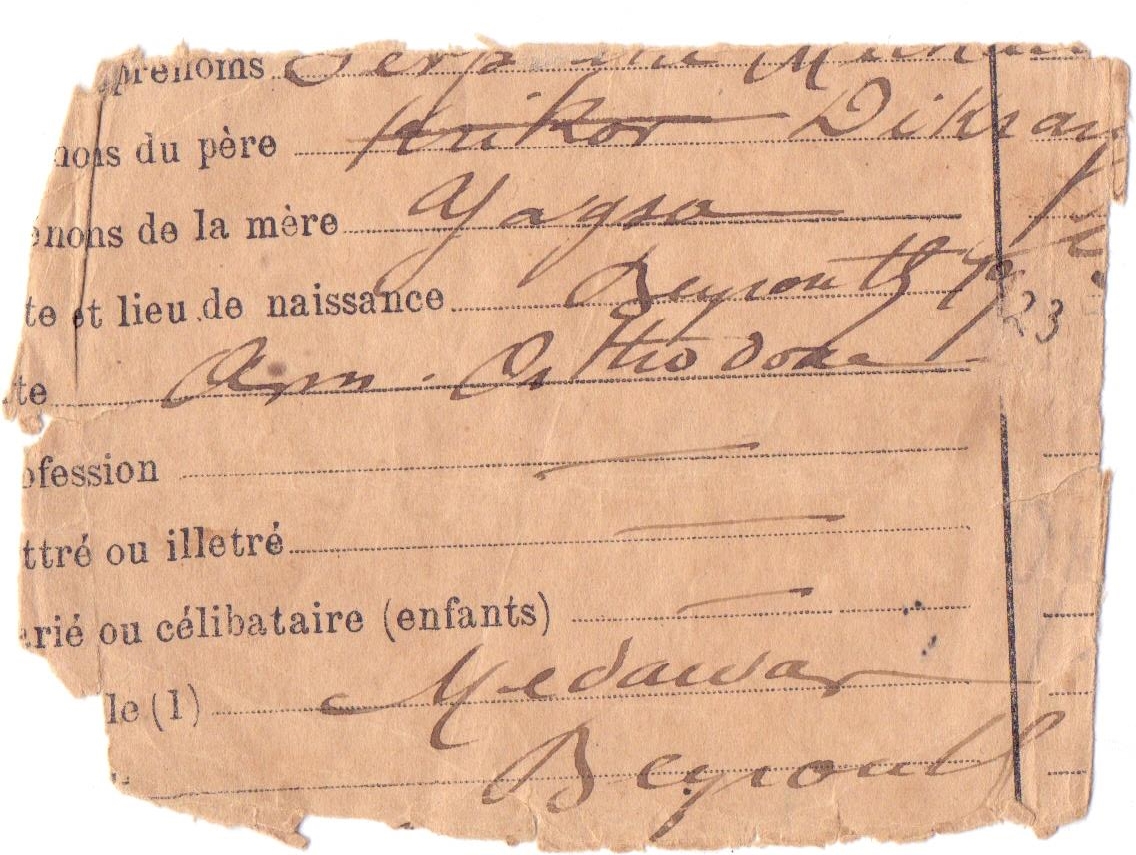 prénoms Serp
noms du père Krikor Dikran
enoms de la mère Yagsa
te et lieu de naissance Beyrouth 19
23
te Arm. Orthodoxe
ofession
ttré ou illetré
arié ou célibataire (enfants)
le (1) Medawar
Beyrouth